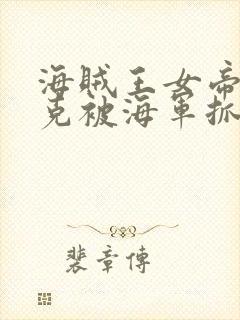 海賊王女帝
克被海軍抓
裴章傳